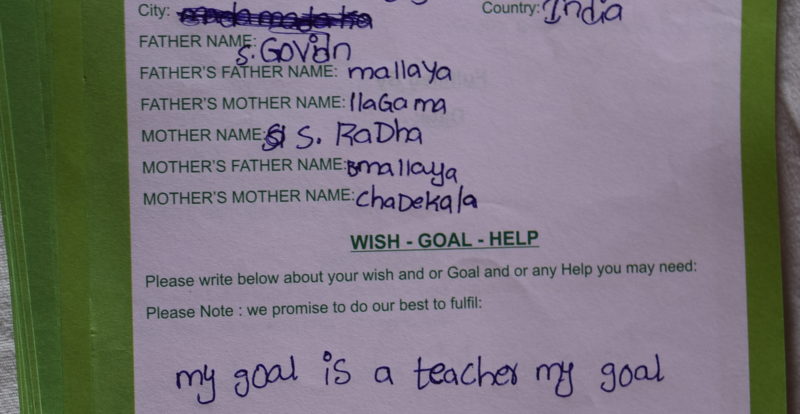 City: Country: India
FATHER NAME: S. GOVidn
FATHER'S FATHER NAME: mallaya
FATHER'S MOTHER NAME: llaGama
MOTHER NAME: S. RaDha
MOTHER'S FATHER NAME: mallaya
MOTHER'S MOTHER NAME: chaDekala
WISH - GOAL - HELP
Please write below about your wish and or Goal and or any Help you may need:
Please Note : we promise to do our best to fulfil:
my goal is a teacher my goal